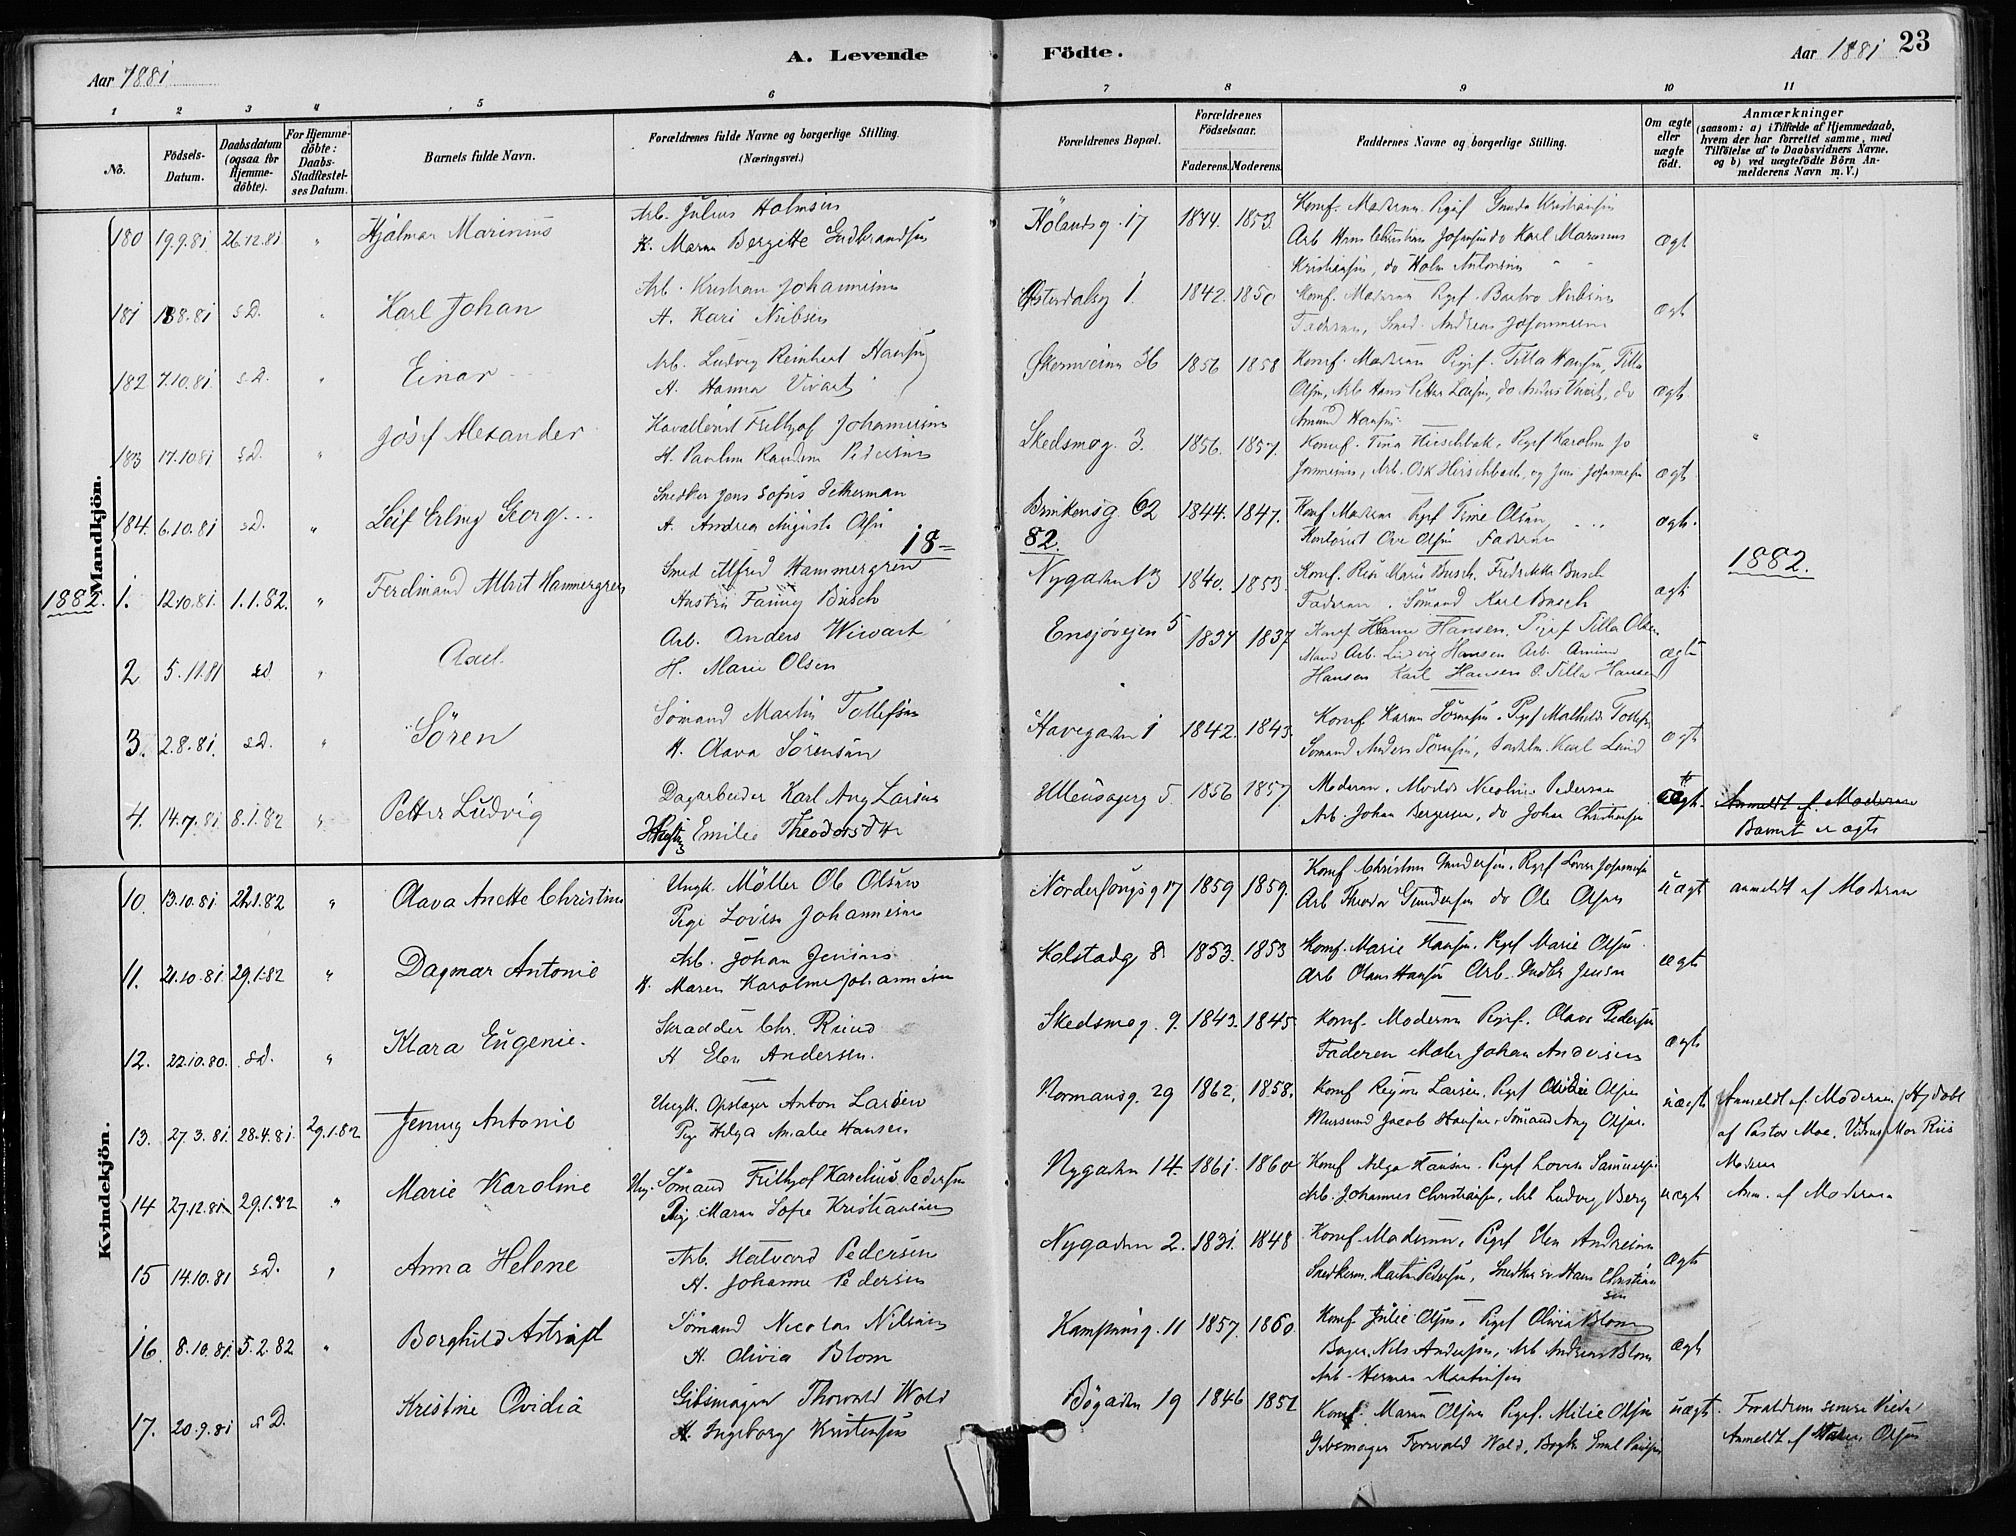 Aar 1881
A. Levende
Födte.
Aar 1881
23
1 2 3 4 5 6 7 8 9 10 11
No.
Födsels-
Datum.
Daabsdatum
(ogsaa for
Hjemme-
döbte).
For Hjemme-
döbte:
Daabs-
Stadfæstel-
ses Datum.
Barnets fulde Navn.
Forældrenes fulde Navne og borgerlige Stilling.
(Næringsvei.)
Forældrenes Bopæl.
Forældrenes
Födselsaar.
Faderens. Moderens.
Faddernes Navne og borgerlige Stilling.
Om ægte
eller
uægte
födt.
Anmærkninger
(saasom: a) i Tilfælde af Hjemmedaab,
hvem der har forrettet samme, med
Tilföielse af to Daabsvidners Navne,
og b) ved uægtefödte Börn An-
melderens Navn m. V.)
Mandkjön.
180 19.9.81 26.12.81 " Hjalmar Marinius
Arb. Julius Holmsen
H. Maren Bergitte Gudbrandsen
Hölandsg. 17 1844. 1853.
Konf. Moderen Pigef Gunda Kristiansen
Arb Hans Christian Josefsen do Karl Marinius
Kristiansen, do Holm Antonsen
ægt
181 8.81 s.D. " Karl Johan
Arb. Kristian Johannesen
H. Kari Nilsen
Østerdalsg 1. 1842. 1850
Konf. Moderen Pigef. Barbro Nilsen
Faderen, Smed Andreas Johannesen
ægt
182 7.10.81 s.D. " Einar
Arb. Ludvig Reinhart Hansen
H. Hanna Vivart
Økernveien 36 1856 1858
Konf. Moderen Pigef. Tilla Hansen, Tilla
Olsen, Arb Hans Petter Larsen, do Anders Vivart, do
Amund Hansen
ægt
183 17.10.81 s.D. " Josef Alexander
Frithjof Johannesen
H. Pauline Randine Pedersen
Skedsmog. 3. 1856. 1857.
Konf. Tina Hirschbak, Pigef Karoline Jo
hannesen, Arb. Osk Hirschbach, og Jens Johannesen
ægt
184. 6.10.81 s.D. " Leif Erling Georg
Snedker Jens Sofus Setterman
H. Andrea Augusta Olsen
Brinkensg. 62 1844. 1847.
Konf Moderen Pigef Trine Olsen
Kontorist Ove Olsen Faderen
ægt.
18-82.
1882.
1882.
1. 12.10.81. 1.1.82. " Ferdinand Albert Hammergren
Smed Alfred Hammergren
Hustru Fanny Busch
Nygaden 13 1840. 1853.
Konf. Rise Marie Busch. Fredrikke Busch
Faderen. Sömand Karl Busch
ægt
2 5.11.81 s.d. " Axel.
Arb. Anders Wiwart
H. Marie Olsen
Ensjøvejen 5 1834 1837
Konf Hanna Hansen, Pigef Tilla Olsen
Mand Arb. Ludvig Hansen Arb. Amund
Hansen Karl Hansen o. Tilla Hansen
ægte
3. 2.8.81. s.d. " Sören
Sömand Martin Tollefsen
H. Olava Sörensen
Havegaden 1 1842. 1843.
Konf Karen Sörensen, Pigef Mathilde Tollefsen
Sömand Anders Sörensen, Karl Lund
ægt
4. 14.7.81. 8.1.82 " Petter Ludvig
Dagarbeider Karl Aug Larsen
Hustru Emilie Theodorsdtr
Ullensagerg 5. 1856 1857
Moderen, Mathilde Nicoline Pedersen
Arb. Johan Bergersen, do Johan Christiansen
ægt.
Anmeldt af Moderen
Barnet er ægte
Kvindekjön.
10. 13.10.81. 22.1.82 " Olava Anette Christine
Ungk. Möller Ole Olsen
Pige Lovise Johannesen
Nordersöngsg 17 1859 1859.
Konf Christine Gundersen. Pigef Lovise Johannesen
Arb Theodor Gundersen do Ole Olsen
uægt
anmeldt af Moderen
11. 21.10.81. 29.1.82 " Dagmar Antonie
Arb. Johan Jensen
H. Maren Karoline Johannesen
Kolstadg 8 1853. 1853
Konf. Marie Hansen. Pigef Marie Olsen
Arb Olaus Hansen Arb. Gudbr Jensen
ægt
12. 22.10.80. s.d. " Klara Eugenie.
Skradder Chr. Ruud
H Elen Andersen.
Skedsmog. 9. 1843. 1845.
Konf. Moderen Pigef. Olava Pedersen
Faderen Maler Johan Andersen
ægt
13. 27.3.81. 28.4.81. 29.1.82 Jenny Antonie
Ungk. Opslager Anton Larsen
Pige Helga Amalie Hansen.
Normansg. 29 1862. 1858.
Konf Regine Larsen, Pigef Olivie Olsen
Mursvend Jacob Hansen, Sömand Aug Olsen.
uægt
Anmeldt af Moderen / Hjdöbt
af Pastor Moe. Vidner Mor Riis
Moderen
14 27.12.81 29.1.82 " Marie Karoline
Ung. Sömand Frithjof Karelius Pedersen
Pige Maren Sofie Kristiansen
Nygaden 14. 1861. 1860
Konf Helga Hansen. Pigef Lovise Samuelsen
Arb. Johannes Christiansen, Arb Ludvig Berg
uægt
Anm. af Moderen
15 14.10.81 s.D. " Anna Helene
Arb. Halvard Pedersen
H. Johanne Pedersen
Nygaden 2. 1831. 1848
Konf. Moderen, Pigef Elen Andreasen
Snedkerm. Martin Pedersen, Snedkersv Hans Christian
sen
ægt
16. 8.10.81. 5.2.82 " Borghild Astrid
Sömand Nicolai Nilsen
H. Olivia Blom
Kampensg. 11 1857. 1860
Konf. Julie Olsen, Pigef Olivia Blom
Bager. Nils Andersen, Arb Andreas Blom
Arb. Herman Martinsen
ægt
17. 20.9.81 s.D. Kristine Ovidia
Gibsmager Thorvald Wold
H. Ingeborg Kristensen
Bögaden 19 1846 1851
Konf. Maren Olsen Pigef. Milie Olsen
Gibsmager Torvald Wold, Bogtr Emil Paulsen
uægt.
Forældrene senere Viede
Anmeldt af Maren Olsen